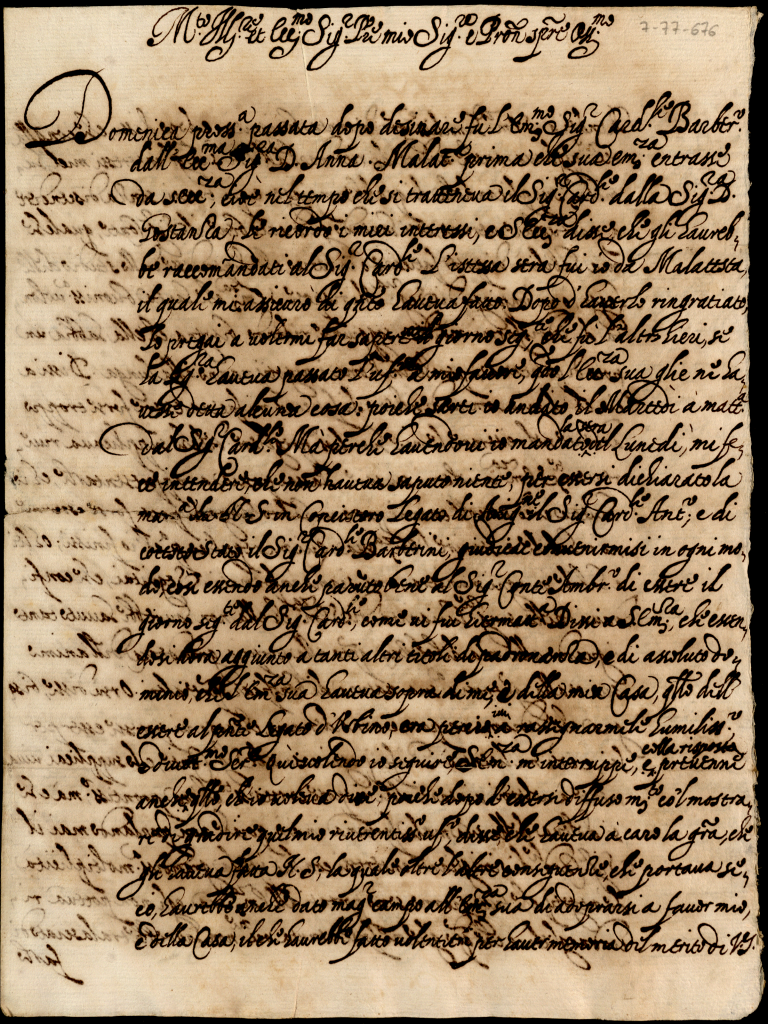 7-77-676
M.to Ill.re et Ecc.mo Sig.r P.re mio Sig.re e Pron sp.re Oss.mo
Domenica pross.a passata dopo desinare fù l'Em.mo Sig.r Card.le Barber.o
dall' Ecc.ma Sig.ra D. Anna. Malat.a prima che sua Em.za entrasse
da S. Ecc.za, cioè nel tempo che si tratteneva il Sig.r Card.le dalla Sig.ra D.
Costanza, le ricordò i miei interessi, e S. Ecc.za disse che gli havreb-
be raccomandati al Sig.r Card.le L'istessa sera fui io da Malatesta,
il quale mi assicurò di q.to haveva fatto. Dopo d'haverlo ringratiato,
lo pregai a volermi far sapere il giorno seg.te, che fù l'altr'hieri, se
la Sig.ra haveva passato l'uff.o a mio favore, q.do l'Ecc.za sua glie ne ha-
vesse detta alcuna cosa: poiche sarei io andato il Martedì à matt.a
dal Sig.r Card.le Ma perche havendovi io mandato la sera del Lunedì, mi fe-
ce intendere, che non haveva saputo niente, per essersi dichiarato la
matt.a da N. S. in Concistoro Legato di il Sig.r Card.le Ant.o, e di
cotesto Stato il Sig.r Card.le Barberini, giudicai convenirmisi in ogni mo-
do, così essendo anche paruto bene al Sig.r Conte Ambr.o di essere il
giorno seg.te dal Sig.r Card.le, come vi fui hiermatt.a Dissi a S. Em.za, che essen-
dosi hora aggiunto a tanti altri titoli di padronanza, e di assoluto do-
minio, che l'Em.za sua haveva sopra di me, e della mia Casa, q.llo dell'
essere al p.nte Legato d'Urbino, era rassegnarmele humiliss.o
e divot.mo Ser.re Qui volendo io seguire S. Em.za m'interruppe, e colla risposta prevenne
anche q.llo, ch'io voleva dire; poiche dopo essersi diffuso m.to col mostra-
re di gradire q.l mio riverentiss.o uff.o disse che haveva a caro la gra, che
gli haveva fatta N. S.; la quale oltre l'altre conseguenze, che portava se-
co, havrebbe anche dato mag.r campo all' Em.za sua di adoprarsi a favor mio,
e della Casa, il che havrebbe fatto volentieri per haver memoria del merito di V. S.